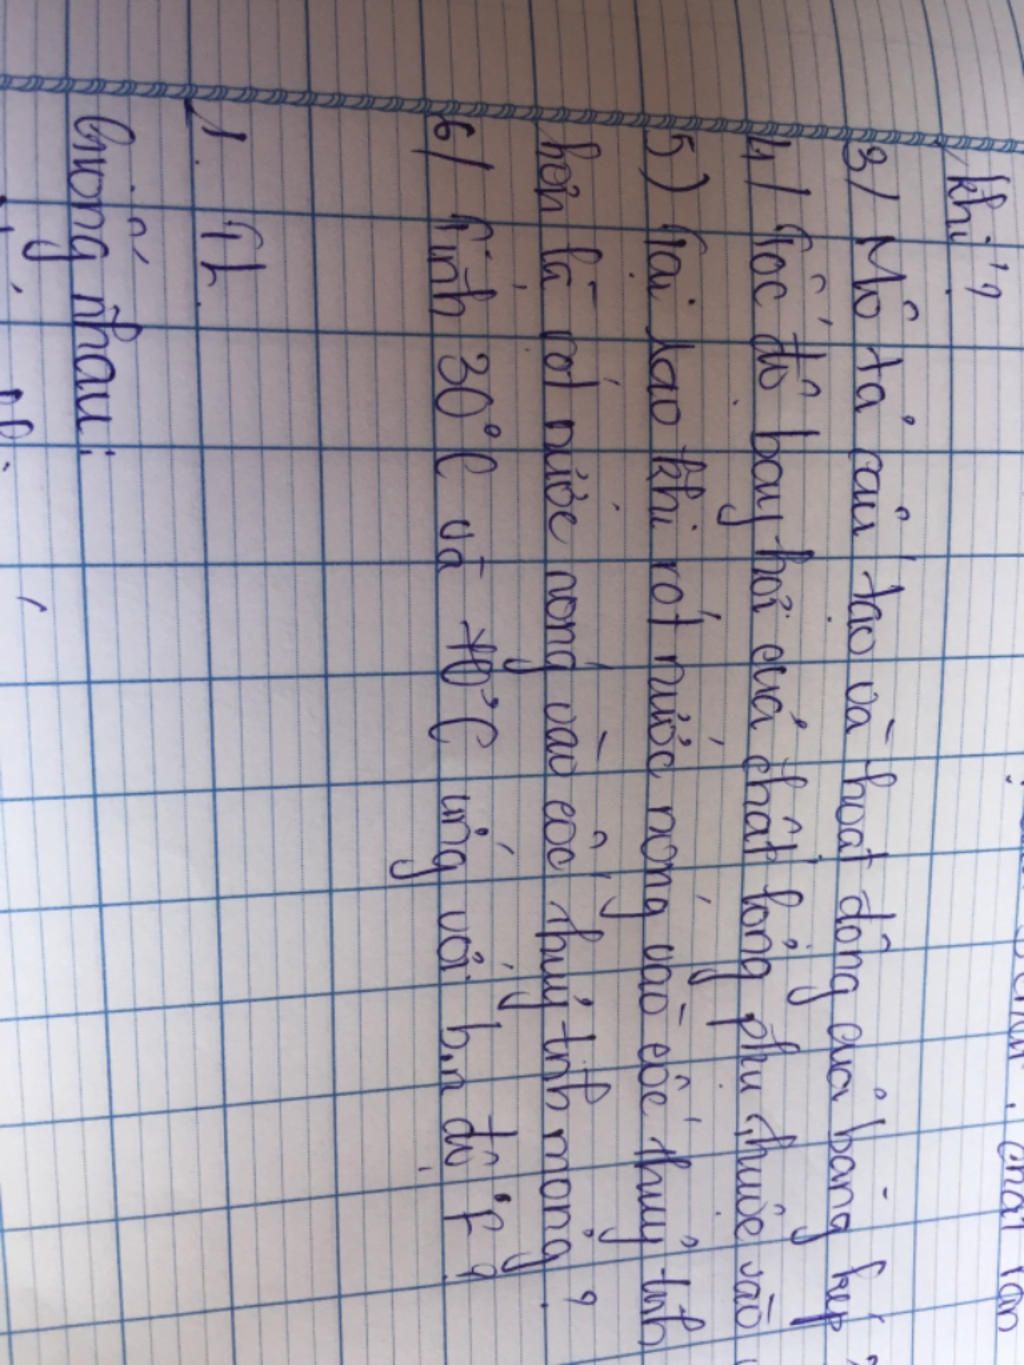 rắn
khí?
3/ Mô tả cấu tạo và hoạt động của băng kép
4/ Tốc độ bay hơi của chất lỏng phụ thuộc vào
5) Tại sao khi rót nước nóng vào cốc thuỷ tinh
hơn là rót nước nóng vào cốc thuỷ tinh mỏng?
6/ Tính 30°C và 70°C ứng với b.n độ °F?
1. TL
Giống nhau: